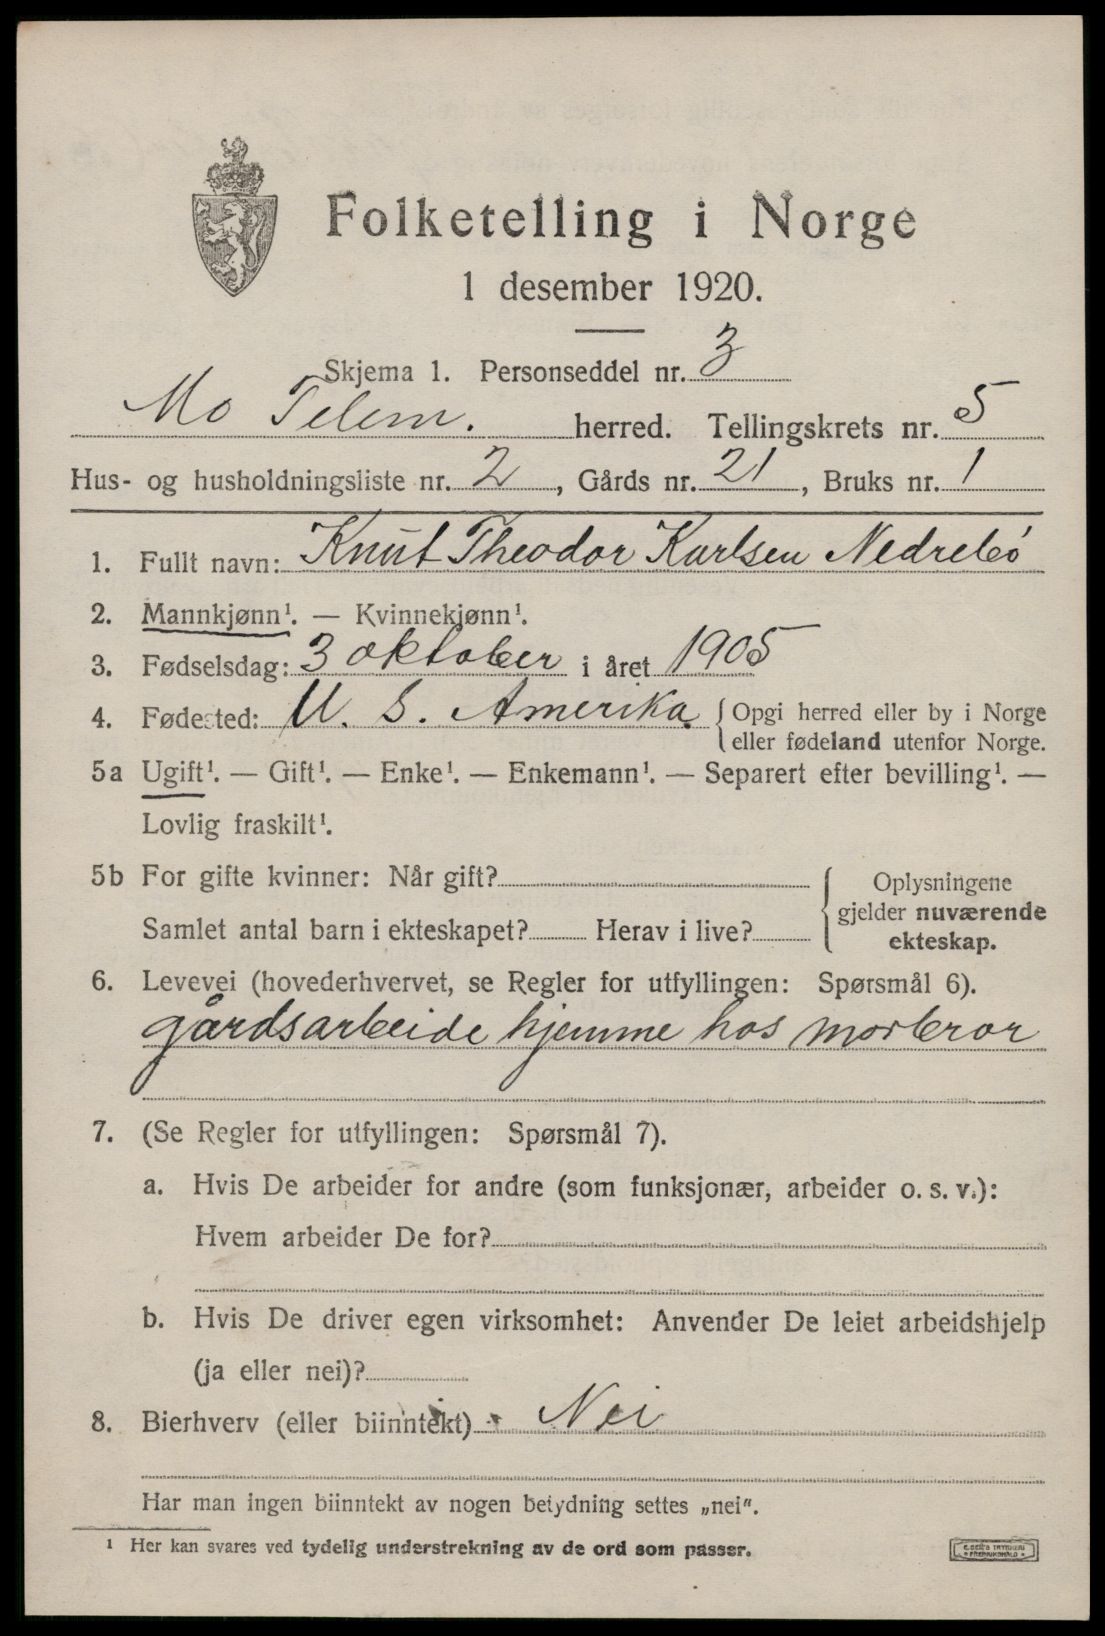 Folketelling i Norge
1 desember 1920.
Skjema 1. Personseddel nr. 3
Mo Telem. herred. Tellingskrets nr. 5
Hus- og husholdningsliste nr. 2, Gårds nr. 21, Bruks nr. 1
1. Fullt navn: Knut Theodor Karlsen Nedrebö
2. Mannkjønn¹. — Kvinnekjønn¹.
3. Fødselsdag: 3 oktober i året 1905
4. Fødested: U. S. Amerika {Opgi herred eller by i Norge
eller fødeland utenfor Norge.
5a Ugift¹. — Gift¹. — Enke¹. — Enkemann¹. — Separert efter bevilling¹. —
Lovlig fraskilt¹.
5b For gifte kvinner: Når gift?
Samlet antal barn i ekteskapet? Herav i live?
Oplysningene
gjelder nuværende
ekteskap.
6. Levevei (hovederhvervet, se Regler for utfyllingen: Spørsmål 6).
gårdsarbeide hjemme hos morbror
7. (Se Regler for utfyllingen: Spørsmål 7).
a. Hvis De arbeider for andre (som funksjonær, arbeider o. s. v.):
Hvem arbeider De for?
b. Hvis De driver egen virksomhet: Anvender De leiet arbeidshjelp
(ja eller nei)?
8. Bierhverv (eller biinntekt) Nei
Har man ingen biinntekt av nogen betydning settes „nei".
¹ Her kan svares ved tydelig understrekning av de ord som passer.